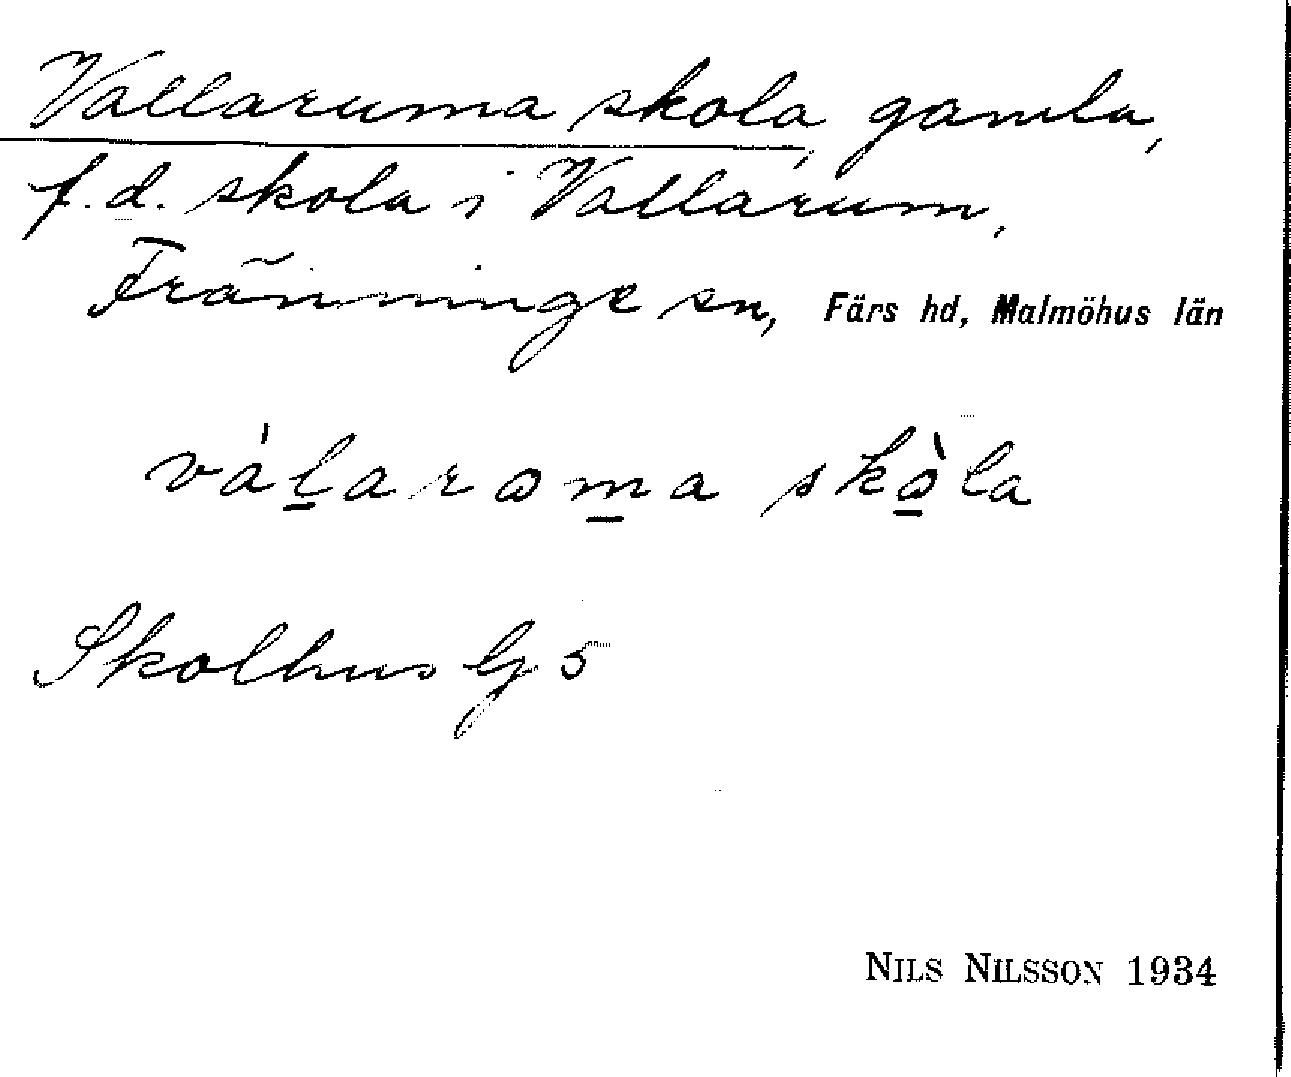 Vallaruma skola, gamla,
f.d. skola i Vallarum,
Fränninge sn, Färs hd, Malmöhus län
vàl̠arɷm̠a skɷ̠̀la
Skolhus G 5
NILS NILSSON 1934